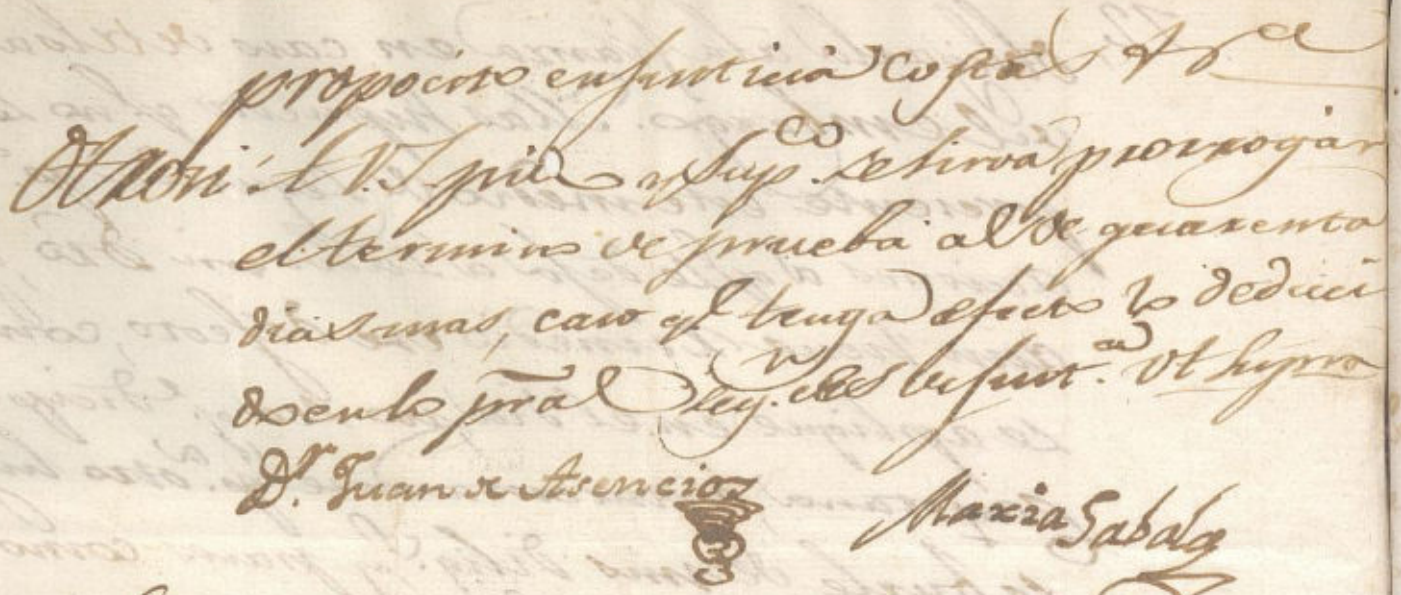 proposito en Justicia costas &ra
Otro si A V.S. pido y Supco. se sirva prorrogar
el termino de prueba al de quarenta
dias mas, caso qe tenga efecto lo deduci
do en lo pral es de Justa. Vt supra
Dr. Juan de Asencios
Maria Sabala